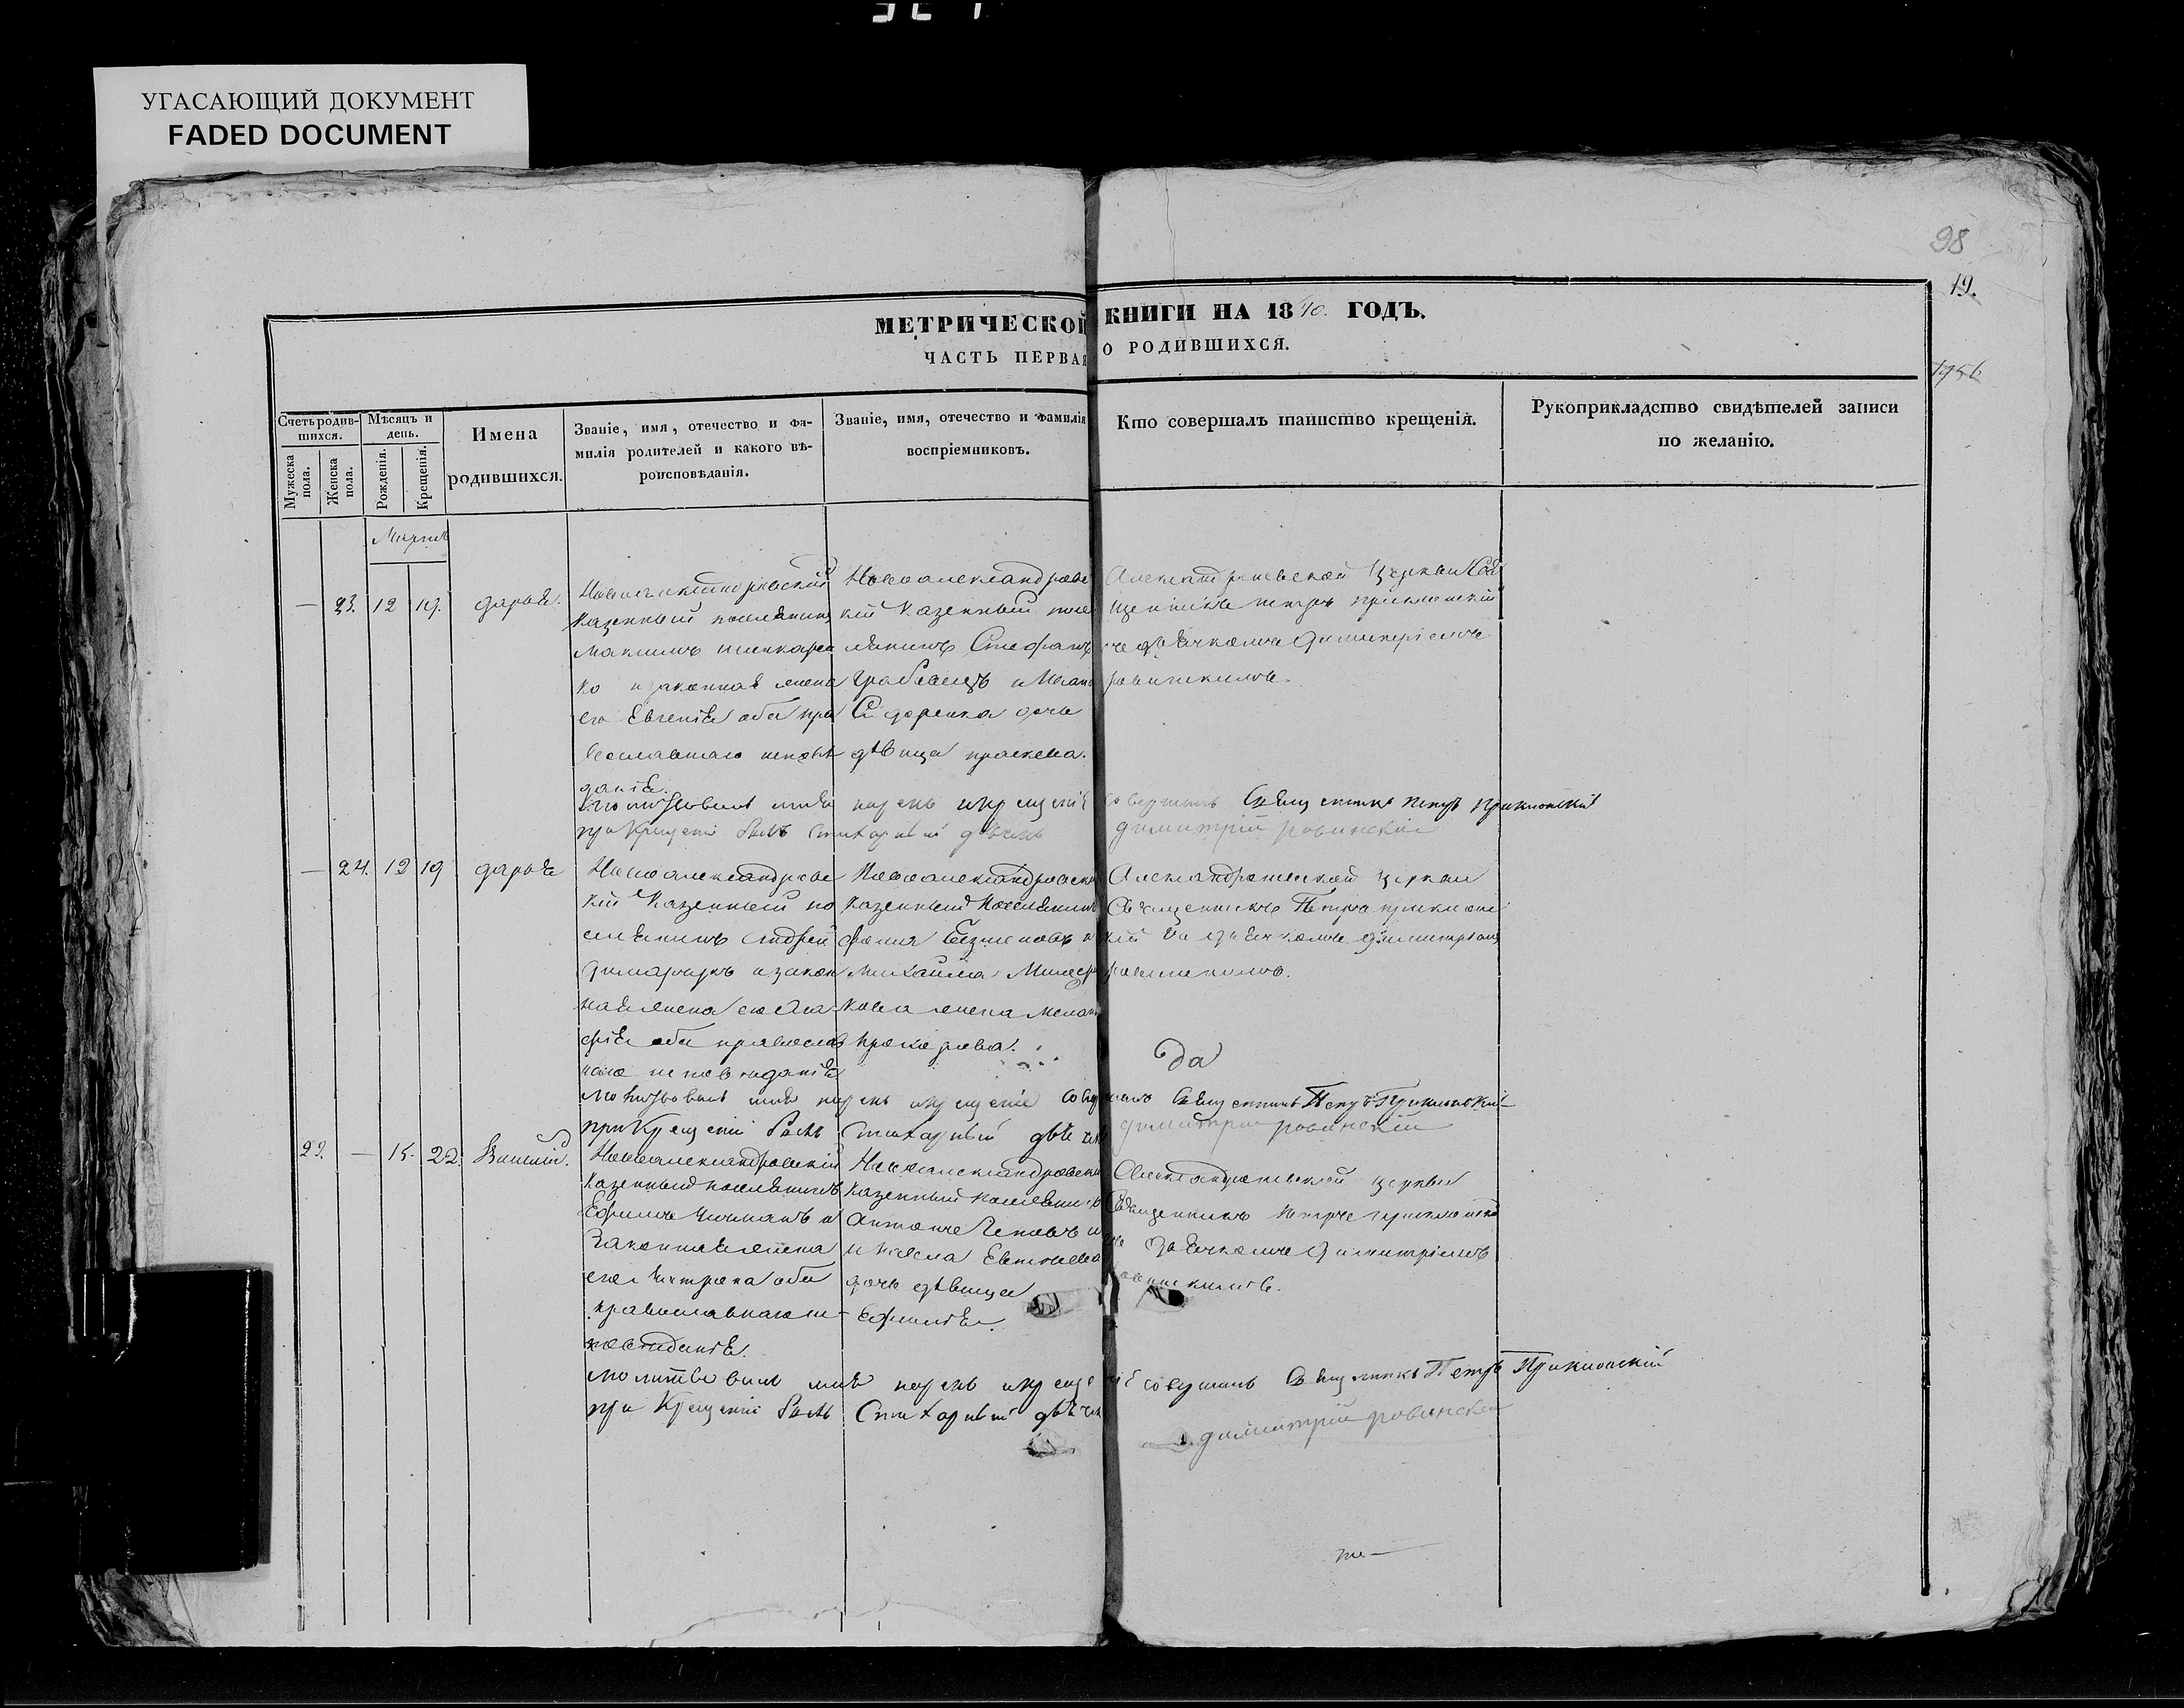 УГАСАЮЩИЙ ДОКУМЕНТ
FADED DOCUMENT
98
19.
МЕТРИЧЕСКОЙ КНИГИ НА 1840. ГОДЪ.
ЧАСТЬ ПЕРВАЯ О РОДИВШИХСЯ.
Счетъ родив-
шихся.
Мужеска пола.
Женска пола.
Мѣсяцъ и
день.
Рожденія.
Крещенія.
Имена
родившихся.
Званіе, имя, отечество и фа-
милія родителей и какого вѣ-
роисповѣданія.
Званіе, имя, отечество и фамилія
воспріемниковъ.
Кто совершалъ таинство крещенія.
Рукоприкладство свидѣтелей записи
по желанію.
Мартъ
— 23. 12 19. дарья.
Новоалександровскій
казенный поселянинъ
максимъ
ко и законная жена
его Евгенія оба пра
вославнаго исповѣ
данія.
Новоалександровс
кій казенный посе
лянинъ Стефанъ
грабовецъ и Иван
Сидоренка дочь
дѣвица
Александровской Церкви Свя
щенникъ петръ приклонскій
съ дьячкомъ Димитріемъ
ровинскимъ.
молитвовалъ имя нарекъ и крещеніе совершилъ Священникъ Петръ Приклонскій
при Крещеніи былъ Стихарный дьячекъ димитрій ровинскій
— 24. 12 19 дарья
Новоалександровс
кій Казенный по
селянинъ андрей
и закон
ная жена его Ага
фія оба православ
наго исповѣданія
Новоалександровскій
Казенный Поселянинъ
фома
Михайла
кова жена мелан
прохорова.
Александровской церкви
Священникъ Петръ приклонс
кій съ дьячкомъ димитріемъ
ровинскимъ.
да
молитвовалъ имя нарекъ и крещеніе совершилъ Священникъ Петръ Приклонскій
при Крещеніи былъ Стихарный дьячекъ димитрій ровинскій
22. — 15. 22. Василій.
Новоалександровскій
Казенный поселянинъ
Ефимъ и
законная жена
его оба
православнаго ис-
повѣданія.
Новоалександровскій
казенный поселянинъ
Антонъ и
дочь дѣвица
Ефимія.
Александровской церкви
Священникъ петръ приклонскій
съ дьячкомъ Димитріемъ
ровинскимъ.
молитвовалъ имя нарекъ и крещеніе совершилъ Священникъ Петръ Приклонскій
при Крещеніи былъ Стихарный дьячекъ
димитрій ровинскій